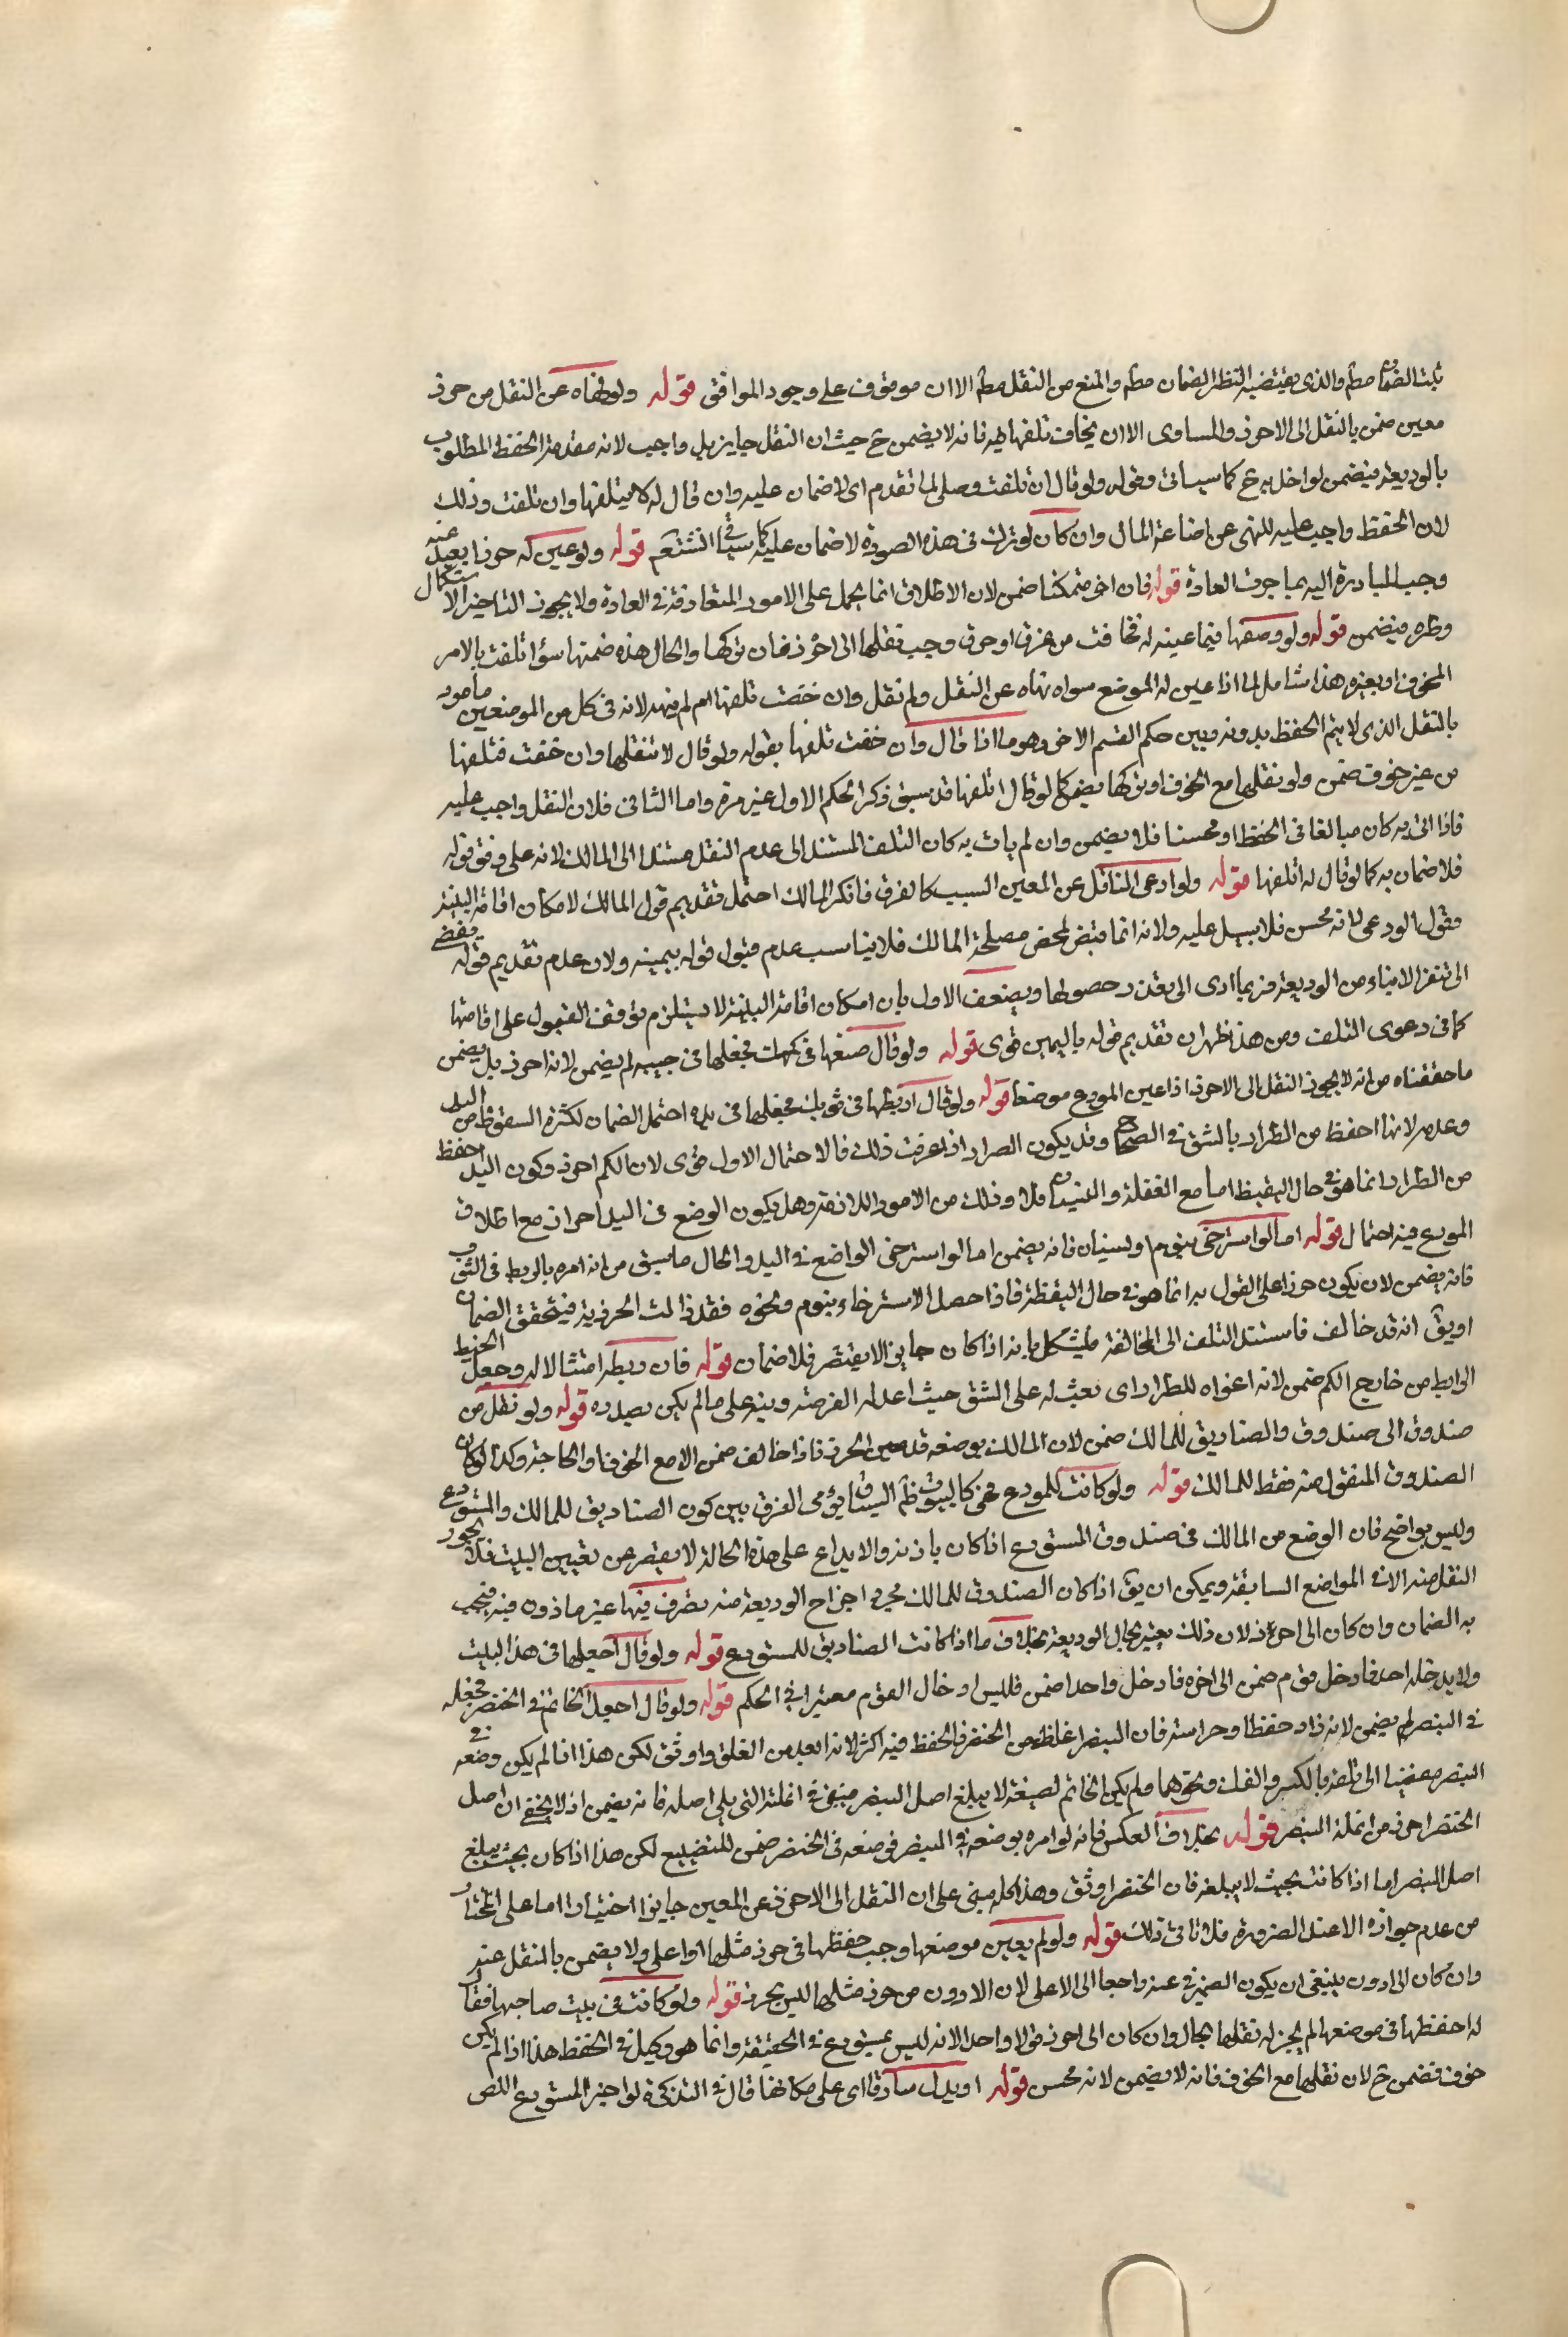 يثبت الضمان مطم والذى يقتضيه النظر الضمان مطم والمنع من النقل مطم الا ان موقوف على وجود الموافق قوله ولو نهاه عن النقل من حرز
معين ضمن بالنقل الى الاحرز والمساوى الا ان يخاف تلفها فيه فانه لا يضمن ح حيث ان النقل جايز بل واجب لانه مقدمة الحفظ المطلوب
بالوديعة فيضمن لو اخل به ح كما سياتى وقوله ولو قال ان تلفت وصلى لما تقدم اى لا ضمان عليه وان قال له لا تنقلها وان تلفت وذلك
لان الحفظ واجب عليه للنهى عن اضاعة المال وان كان لو ترك فى هذه الصورة لا ضمان عليه كما سياتى انشتعم قوله ولو عين له حرزا بعيد عنه
وجب المبادرة اليه بما جرت العادة قوله فان اخر متمكنا ضمن لان الاطلاق انما يحمل على الامور المتعارفة فى العادة ولا يجوز التاخير الا
وطره فيضمن قوله ولو وضعها فيما عينه له فخافت من غرق او حرق وجب نقلها الى احرز فان تركها والحال هذه ضمنها سوا تلفت بالامر
المخوف او بغيره هذا شامل لما اذا عين له الموضع سواه نهاه عن النقل ولم نقل وان خفت تلفها ام لم ينهه لانه فى كل من الموضعين مامور
بالنقل الذى لا يتم الحفظ بدونه وبين حكم القسم الاخر وهو ما اذا قال وان خفت تلفها بقوله ولو قال لا تنقلها وان خفت فنقلها
من غير خوف ضمن ولو نقلها مع الخوف او تركها لم يضمن كما لو قال اتلفها قد سبق ذكر الحكم الاول غير مرة واما الثانى فلان النقل واجب عليه
فاذا اتى به كان مبالغا فى الحفظ او محسنا فلا يضمن وان لم يات به كان التلف المستند الى عدم النقل مستندا الى المالك لانه على وفق قوله
فلا ضمان به كما لو قال له اتلفها قوله ولو ادعى الناقل عن المعين السبب كالغرق فانكر المالك احتمل تقديم قول المالك لامكان اقامة البينة
وقول الودعى لانه محسن فلا سبيل عليه ولانه انما قبض لمحض مصلحة المالك فلا يناسب عدم قبول قوله بيمينه ولان عدم تقديم قوله يفضى
الى تنفر الامناء من الوديعة فربما ادى الى تعذر حصولها ويضعف الاول بان امكان اقامة البينة لا يستلزم توقف القبول على اقامتها
كما فى دعوى التلف ومن هذا ظهر ان تقديم قوله باليمين قوى قوله ولو قال ضعها فى كمك فجعلها فى جيبه لم يضمن لانه احرز بل يضمن
ما حققناه من انه لا يجوز النقل الى الاحرز اذا عين المودع موضعا قوله ولو قال اربطها فى ثوبك فجعلها فى يده احتمل الضمان لكثرة السقوط من اليد
وعدمه لانها احفظ من الطرار بالشق فى الصحاح وقد يكون الصرار اذا عرفت ذلك فالاحتمال الاول قوى لان الكم احرز وكون اليد احفظ
من الطرار انما هو فى حال اليقظة اما مع الغفلة والنسيان فلا وذلك من الامور اللازمة وهل يكون الوضع فى اليد احراز مع اطلاق
المودع فيه احتمال قوله اما لو استرخى بنوم او نسيان فانه يضمن اما لو استرخى الواضع فى اليد والحال ما سبق من انه امره بالربط فى الثوب
فانه يضمن لان يكون حرزا على القول به انما هو فى حال اليقظة فاذا حصل الاسترخاء بنوم ونحوه فقد زالت الحرزية فيتحقق الضمان
او يق انه قد خالف فاستند التلف الى المخالفة فيشكل بانه اذا كان جايز الا يقتضى فلا ضمان قوله فان ربطه امتثالا له وجعل الخيط
الرابط من خارج الكم ضمن لانه اغراه للطرار اى بعث له على الشق حيث اعد له الفرصة ونبه على ما لم يكن بصدده قوله ولو نقل من
صندوق الى صندوق والصناديق للمالك ضمن لان المالك بوضعه قد عين الحرز فاذا خالف ضمن الا مع الخوف او الحاجة وكذا لو كان
الصندوق المنقول عنه فقط للمالك قوله ولو كانت للمودع فهى كالبيوت ظم السياق يؤمى الفرق بين كون الصناديق للمالك والمستودع
وليس بواضح فان الوضع من المالك فى صندوق المستودع اذا كان باذنه والايداع على هذه الحالة لا يقصر عن تعيين البيت فلا يجوز
النقل منه الا فى المواضع السابقة ويمكن ان يق اذا كان الصندوق للمالك فمجرد اخراج الوديعة منه تصرف فيها غير ماذون فيه فيجب
به الضمان وان كان الى احرز لان ذلك يعتبر بحال الوديعة بخلاف ما اذا كانت الصناديق للمستودع قوله ولو قال اجعلها فى هذا البيت
ولا يدخله احد فادخل قوم ضمن الى اخره فادخل واحدا ضمن فلليس ادخال القوم معتبرا فى الحكم قوله ولو قال اجعل الخاتم فى الخنصر فجعله
فى البنصر لم يضمن لانه زاد حفظا وحراسة فان البنصر اغلظ من الخنصر فالحفظ فيه اكثر لانه ابعد من الغلق واوثق لكن هذا اذا لم يكن وضعه فى
البنصر مفضيا الى تلفه بالكسر والفك ونحوهما ولم يكن الخاتم لضيقه لا يبلغ اصل البنصر فيبقى فى انملة التى يلى اصله فانه يضمن اذ لا يخفى ان اصل
الخنصر احرز من انملة البنصر قوله بخلاف العكس فانه لو امره بوضعه فى البنصر فوضعه فى الخنصر ضمن للتضييع لكن هذا اذا كان بحيث يبلغ
اصل البنصر اما اذا كانت بحيث لا يبلغه فان الخنصر اوثق وهذا كله مبنى على ان النقل الى الاحرز عن المعين جايزا اختيارا اما على المختار
من عدم جوازه الا عند الضرورة فلا تاتى ذلك قوله ولو لم يعين موضعها وجب حفظها فى حرز مثلها او اعلى ولا يضمن بالنقل عنه
وان كان الى ادون ينبغى ان يكون الضمير فى عنه راجعا الى الاعلى لان الادون من حرز مثلها ليس بحرز قوله ولو كانت فى بيت صاحبها فقال
له احفظها فى موضعها لم يجز له نقلها بحال وان كان الى احرز قولا واحدا لانه ليس بمستودع فى الحقيقة وانما هو وكيل فى الحفظ هذا اذا لم يكن
خوف فضمن ح لان نقلها مع الخوف فانه لا يضمن لانه محسن قوله او يدل سارقا اى على مكانها قال فى التذكرة لو اخبر المستودع اللص